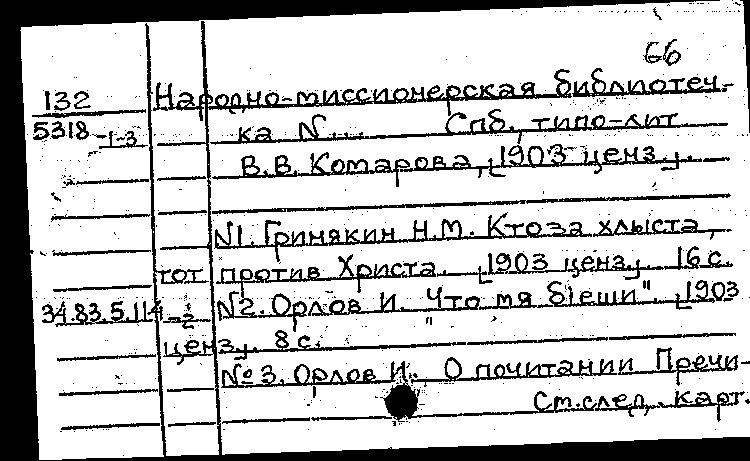 66
132 Народно-миссионерская библиотеч-
5318-1-3 ка N... Спб., типо-лит
В.В. Комарова, [1903 ценз.].
N1. Гринякин Н.М. Кто за хлыста,
тот против Христа. [1903 ценз.] 16 с.
34.83.5.114-1/2 N2. Орлов И. "Что тя
[1903
ценз.]. 8 с.
№3. Орлов И. О почитании Пречи-
См. след. карт.